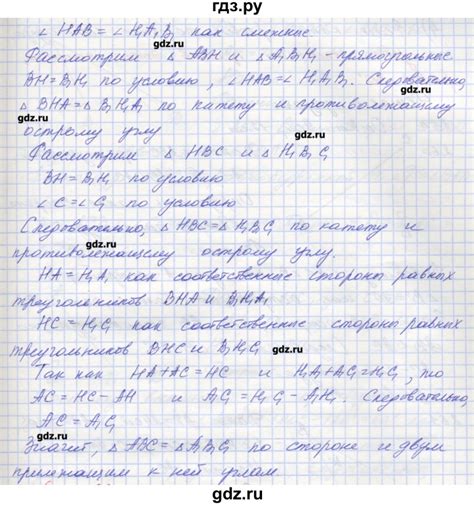 гдз.ру
∠ HAB = ∠ H₁A₁B₁ как смежные
Рассмотрим △ ABH и △ A₁B₁H₁ - прямоугольные
BH = B₁H₁ по условию, ∠ HAB = ∠ H₁A₁B₁. Следовательно,
△ BHA = △ B₁H₁A по катету и противолежащему
острому углу
Рассмотрим △ HBC и △ H₁B₁C₁
BH = B₁H₁ по условию
∠ C = ∠ C₁ по условию
Следовательно, △ HBC = △ H₁B₁C₁ по катету и
противолежащему острому углу.
HA = H₁A₁ как соответственные стороны равных
треугольников BHA и B₁H₁A₁
HC = H₁C₁ как соответственные стороны равных
треугольников BHC и B₁H₁C₁
Так как HA + AC = HC и H₁A₁ + A₁C₁ = H₁C₁, то
AC = HC - AH и A₁C₁ = H₁C₁ - A₁H₁. Следовательно,
AC = A₁C₁
Значит, △ ABC = △ A₁B₁C₁ по стороне и двум
прилежащим к ней углам
gdz.ru
gdz.ru
gdz.ru
gdz.ru
gdz.ru
gdz.ru
gdz.ru
gdz.ru
gdz.ru
gdz.ru